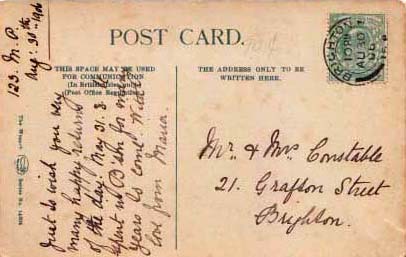 POST CARD.
THIS SPACE MAY BE USED
FOR COMMUNICATION
(In British Isles only)
(Post Office Regulation).
THE ADDRESS ONLY TO BE
WRITTEN HERE.
BRIGHTON
AU 30
06
123. M. P.
Aug: 30th 1906
Just to wish you very
many happy returns
of the day. May
for many
years to come. With
love from Maria.
Mr. & Mrs. Constable
21. Grafton Street
Brighton.